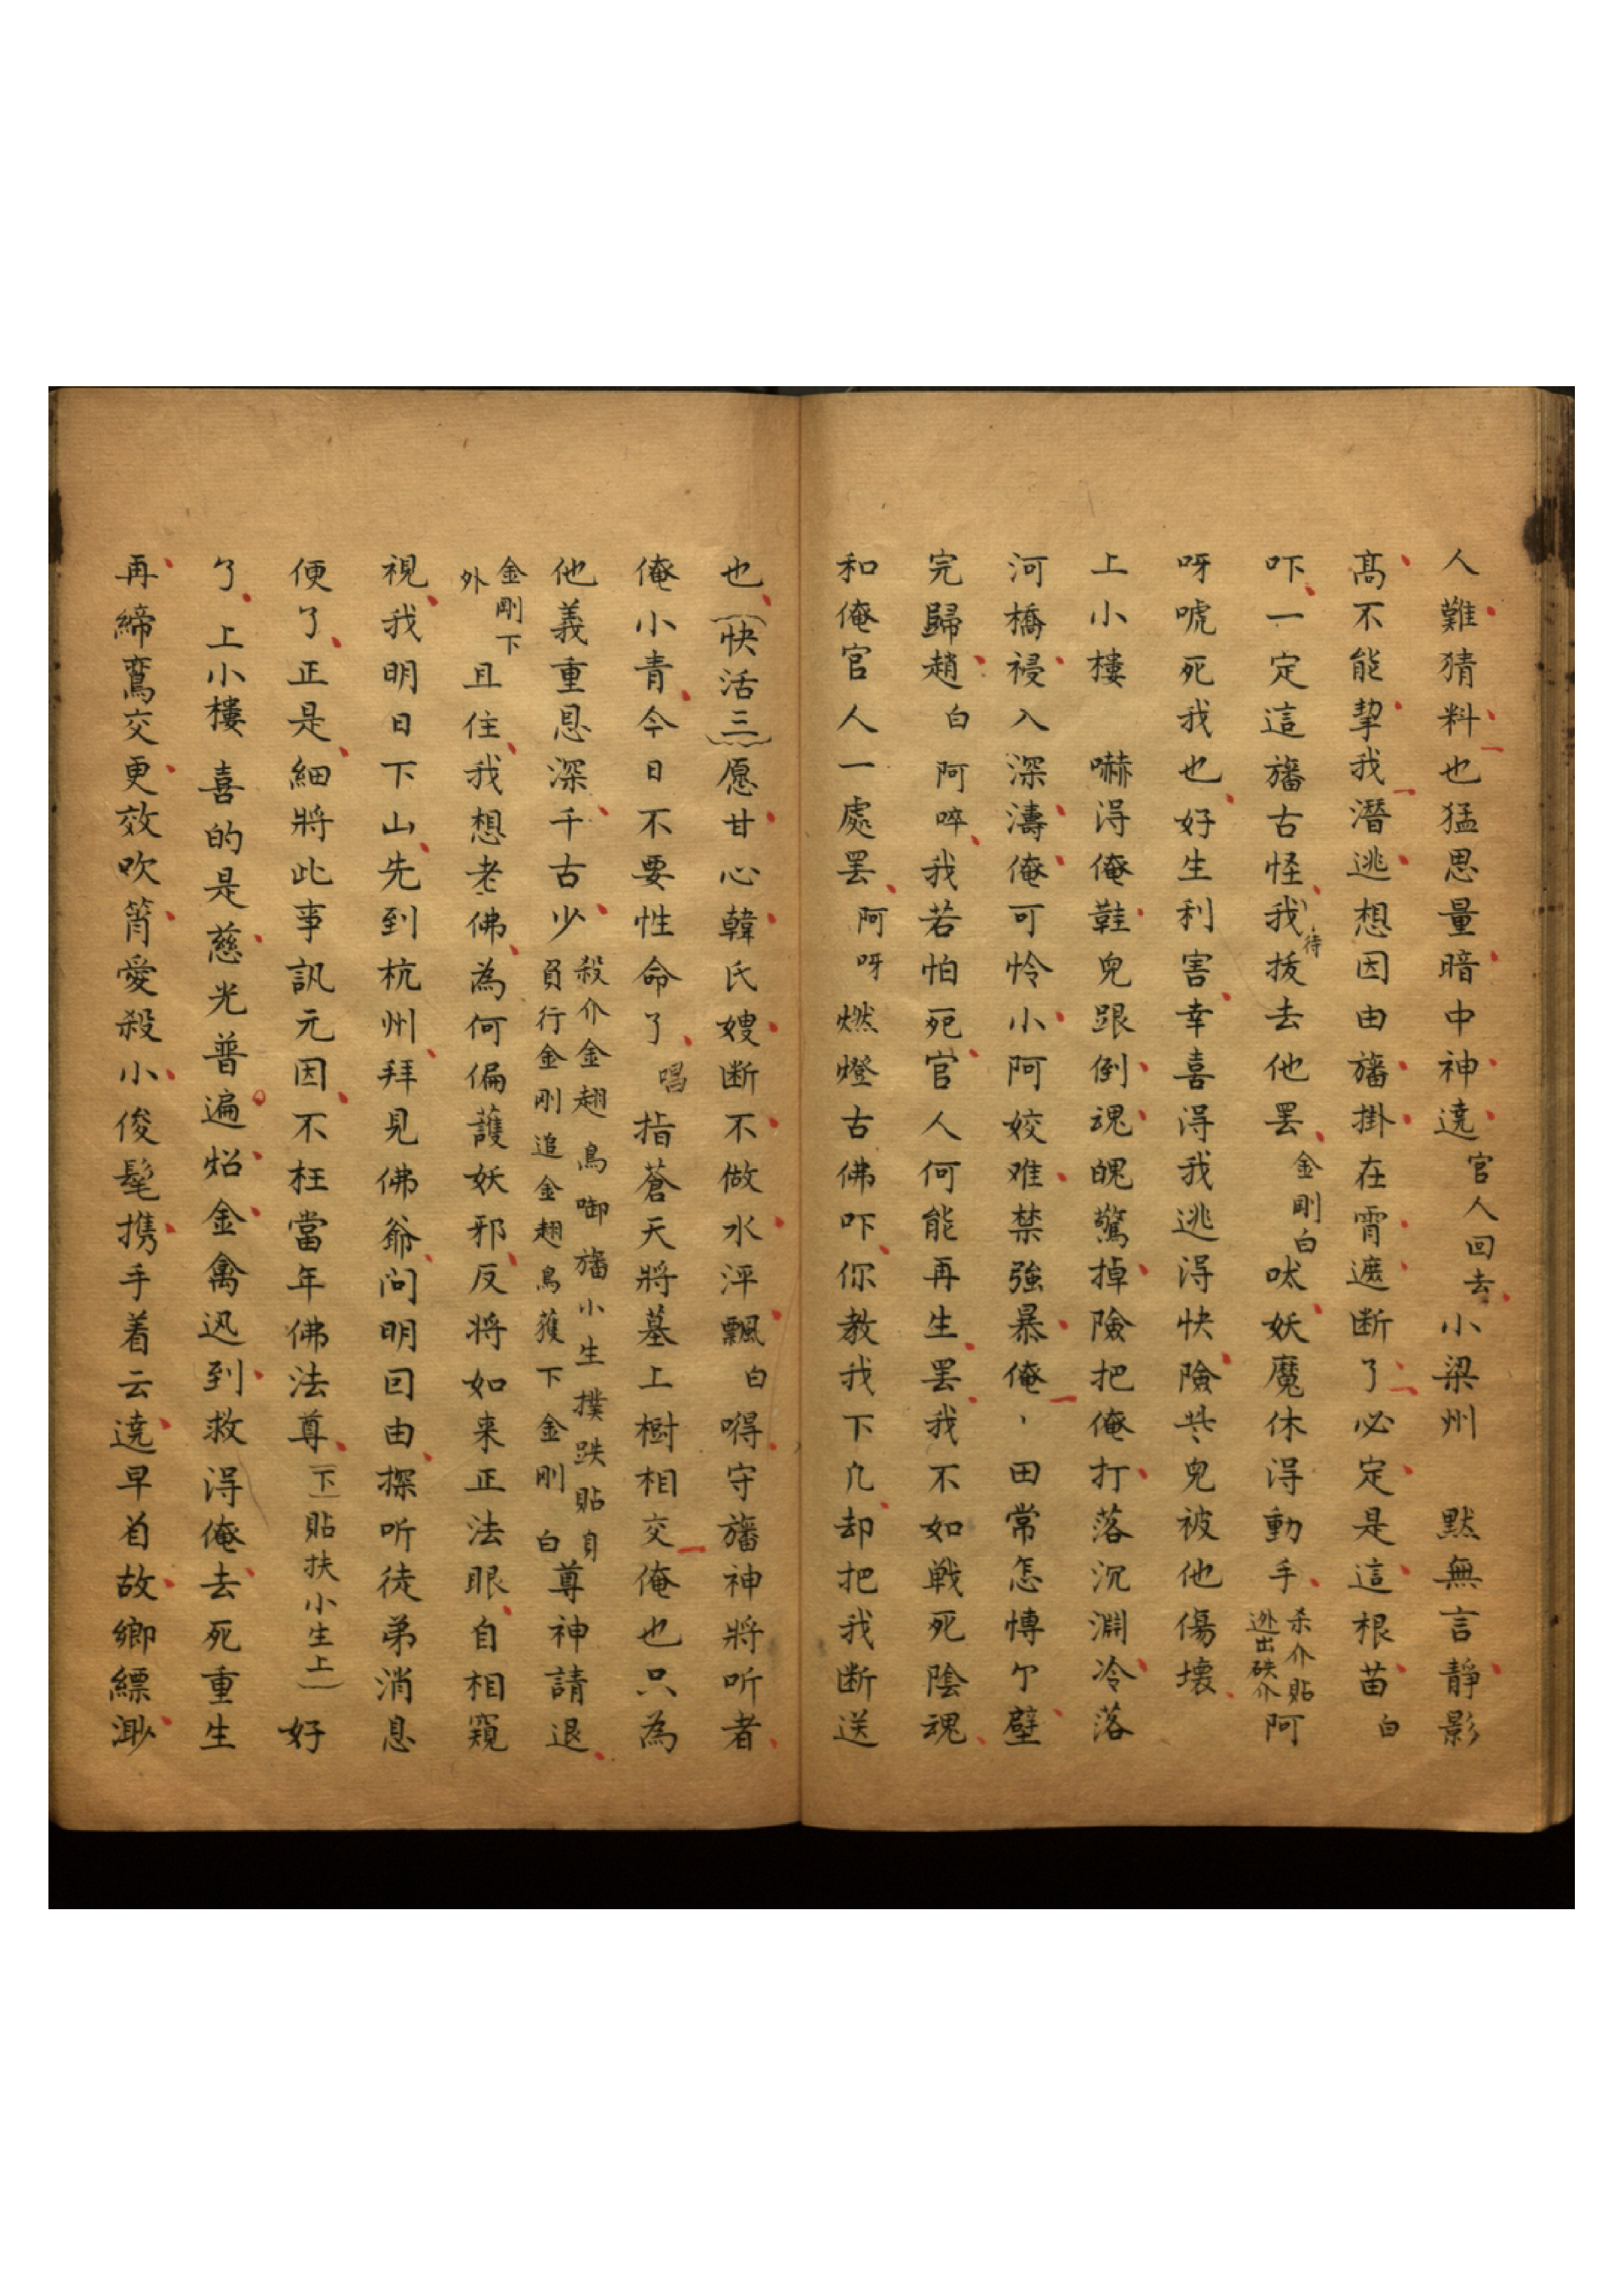 人難猜料也猛思量暗中神遶官人回去小梁州 默無言靜影
髙不能挈我潛逃想因由旛掛在霄遮断了必定是這根苗白
吓一定這旛古怪我待拔去他罢金剛白呔妖魔休得動手杀介貼
迯出跌介阿
呀唬死我也好生利害幸喜淂我逃淂快險些兒被他傷壞
上小樓 嚇淂俺鞋兒跟倒魂魄驚掉險把俺打落沉淵冷落
河橋祲入深濤俺可怜小阿姣难禁強暴俺丶田常怎愽尓壁
完歸趙白阿啐我若怕死官人何能再生罢我不如戦死陰魂
和俺官人一處罢阿呀燃燈古佛吓你教我下凢却把我断送
也(快活三)愿甘心韓氏嫂断不做水泙飄白嘚守旛神將听者
俺小青今日不要性命了唱指蒼天將墓上樹相交俺也只為
他義重恩深千古少殺介金翅鳥啣旛小生撲跌貼身
負行金剛追金翅鳥獲下金剛白尊神請退
金剛下
外且住我想老佛為何偏護妖邪反将如来正法眼自相窺
視我明日下山先到杭州拜見佛爺问明囙由探听徒弟消息
便了正是細將此事訊元因不枉當年佛法尊(下)貼扶小生上)好
了上小樓喜的是慈光普遍炤金禽迅到救淂俺去死重生
再締鸞交更效吹筲愛殺小俊髦携手着云遶早首故鄉縹渺